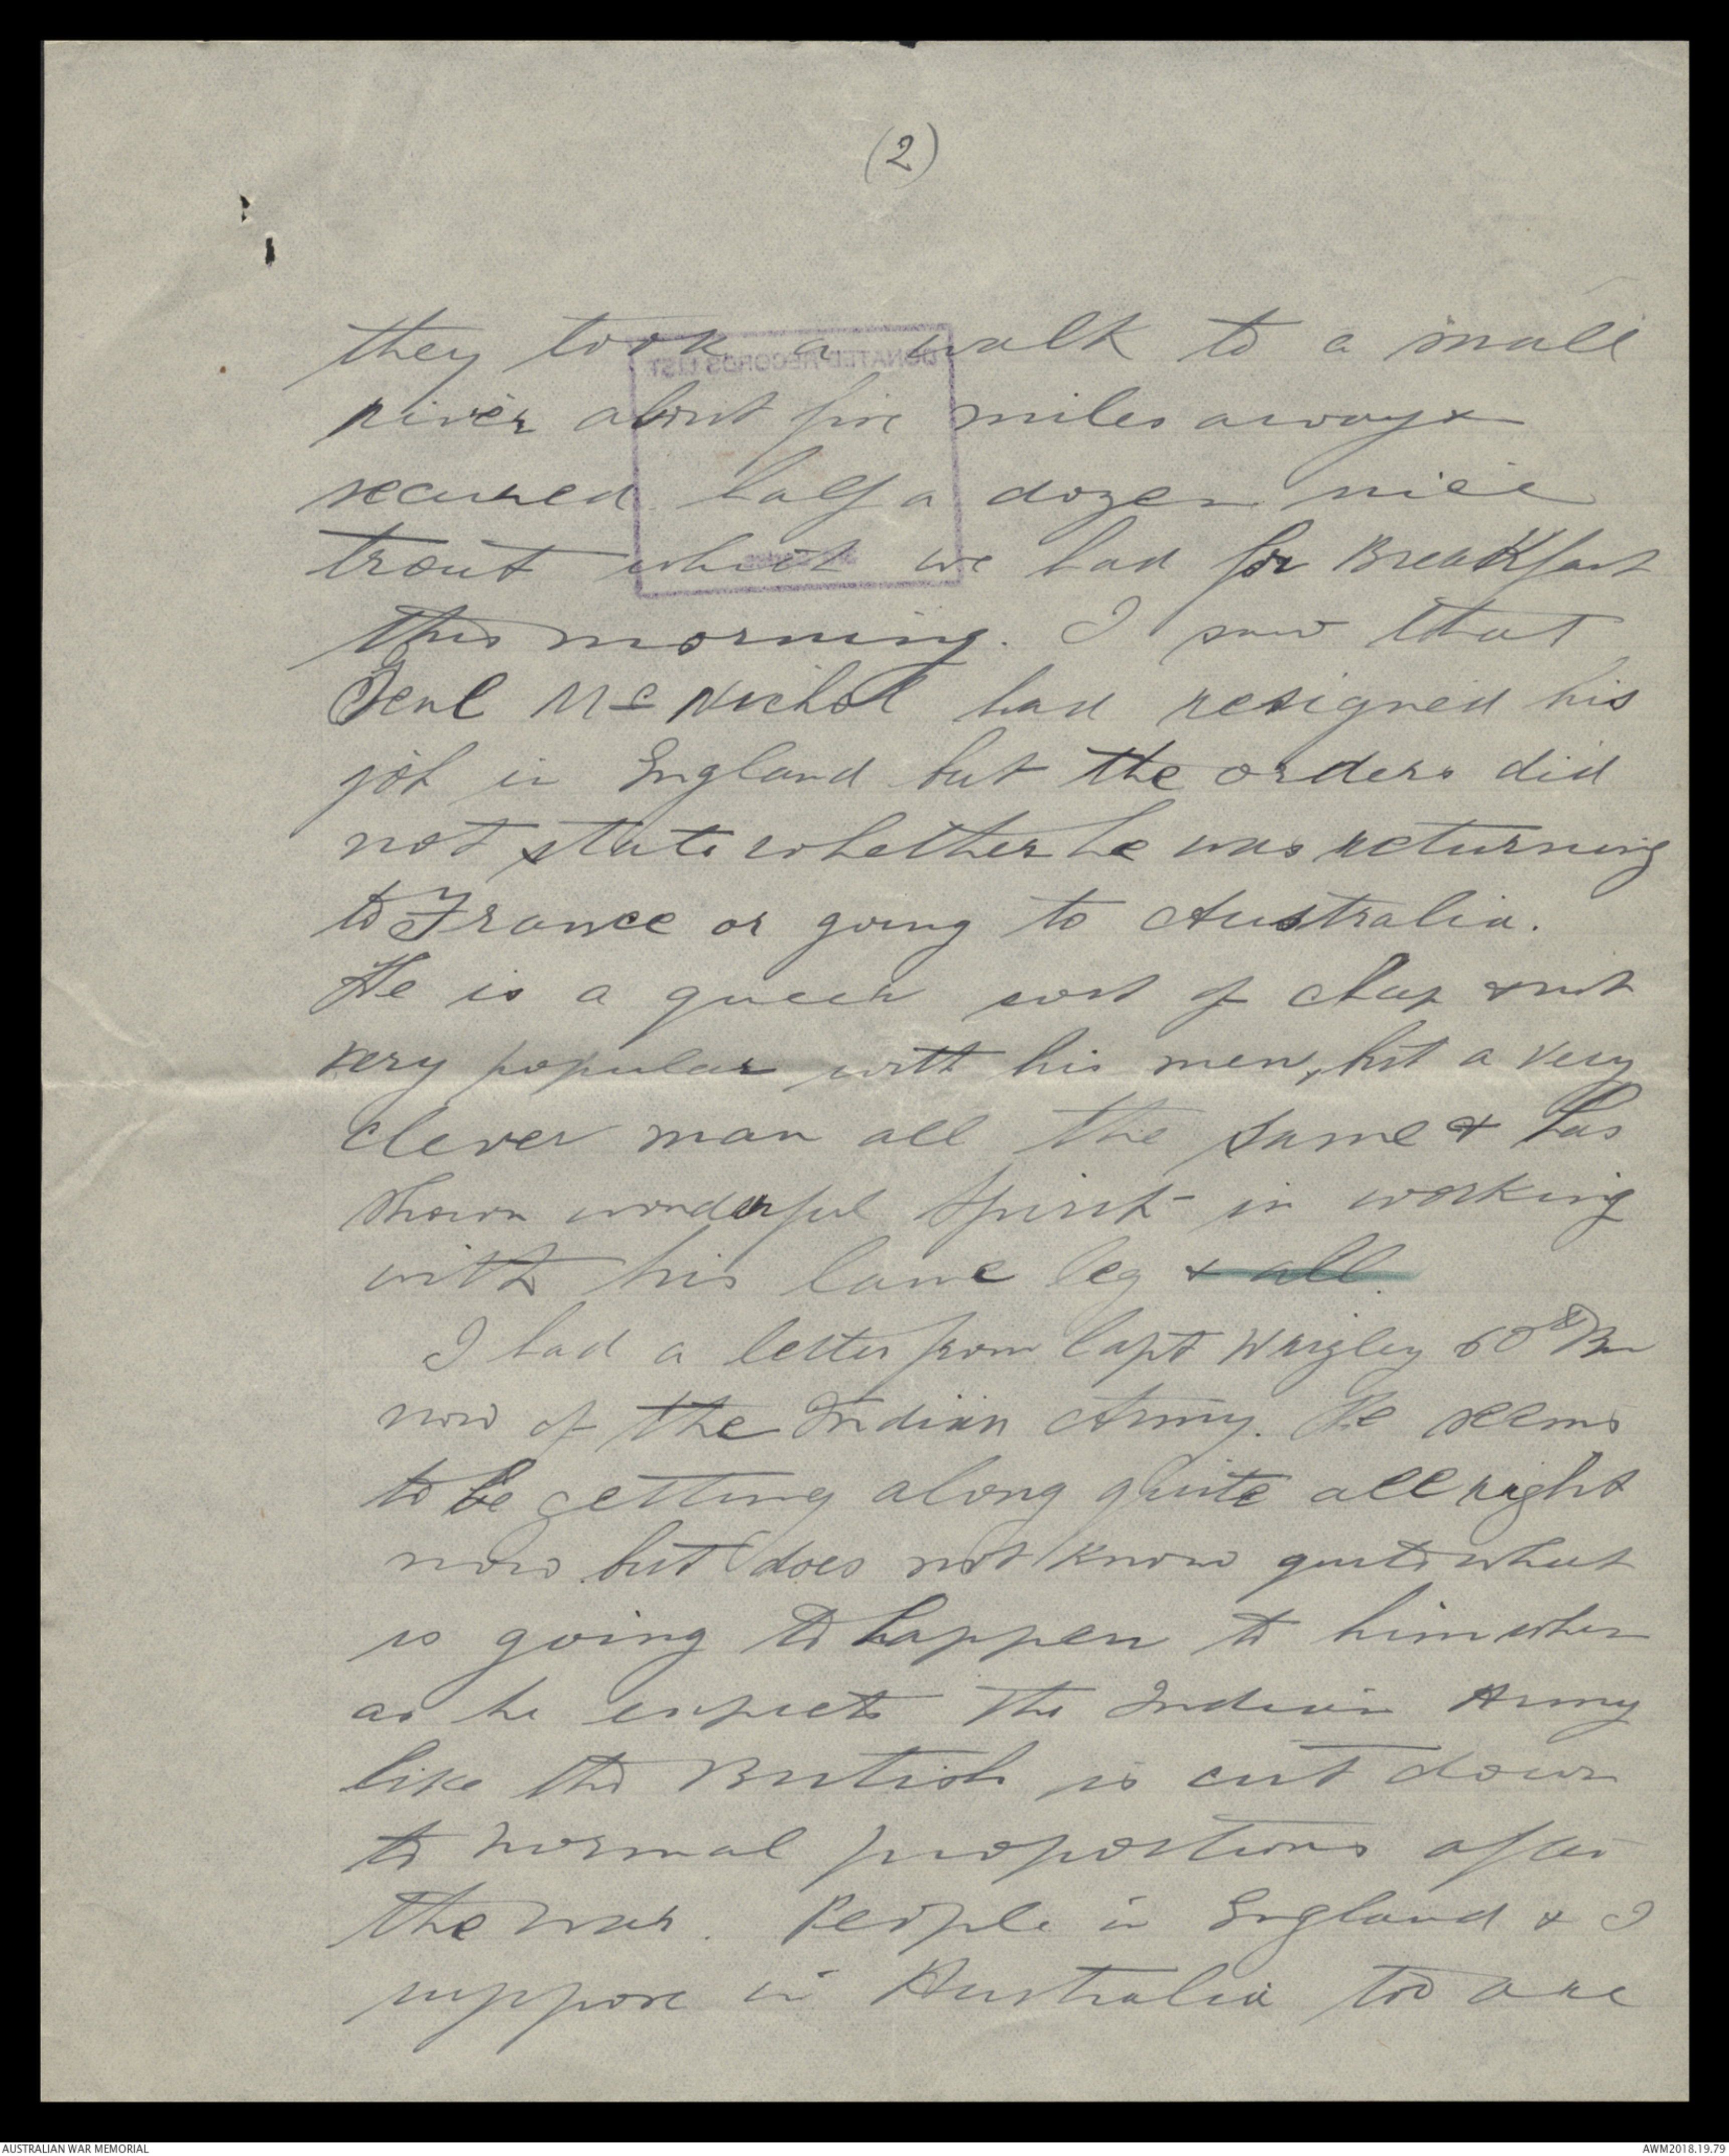 (2)
they took a walk to a small
river about five miles away &
secured half a dozen nice
trout which we had for Breakfast
this morning. I saw that
Genl McNichol had resigned his
job in England but the orders did
not state whether he was returning
to France or going to Australia.
He is a queer sort of chap & not
very popular with his men, but a very
clever man all the same & has
shown wonderful spirit in working
with his lame leg & all.
I had a letter from Capt Wrigley 60th Bn
now of the Indian Army. He seems
to be getting along quite all right
now but does not know quite what
is going to happen to him when
as he expects the Indian Army
like the British is cut down
to normal proportions after
the war. People in England & I
suppose in Australia too are
DONATED RECORDS LIST
AUSTRALIAN WAR MEMORIAL
AWM2018.19.79